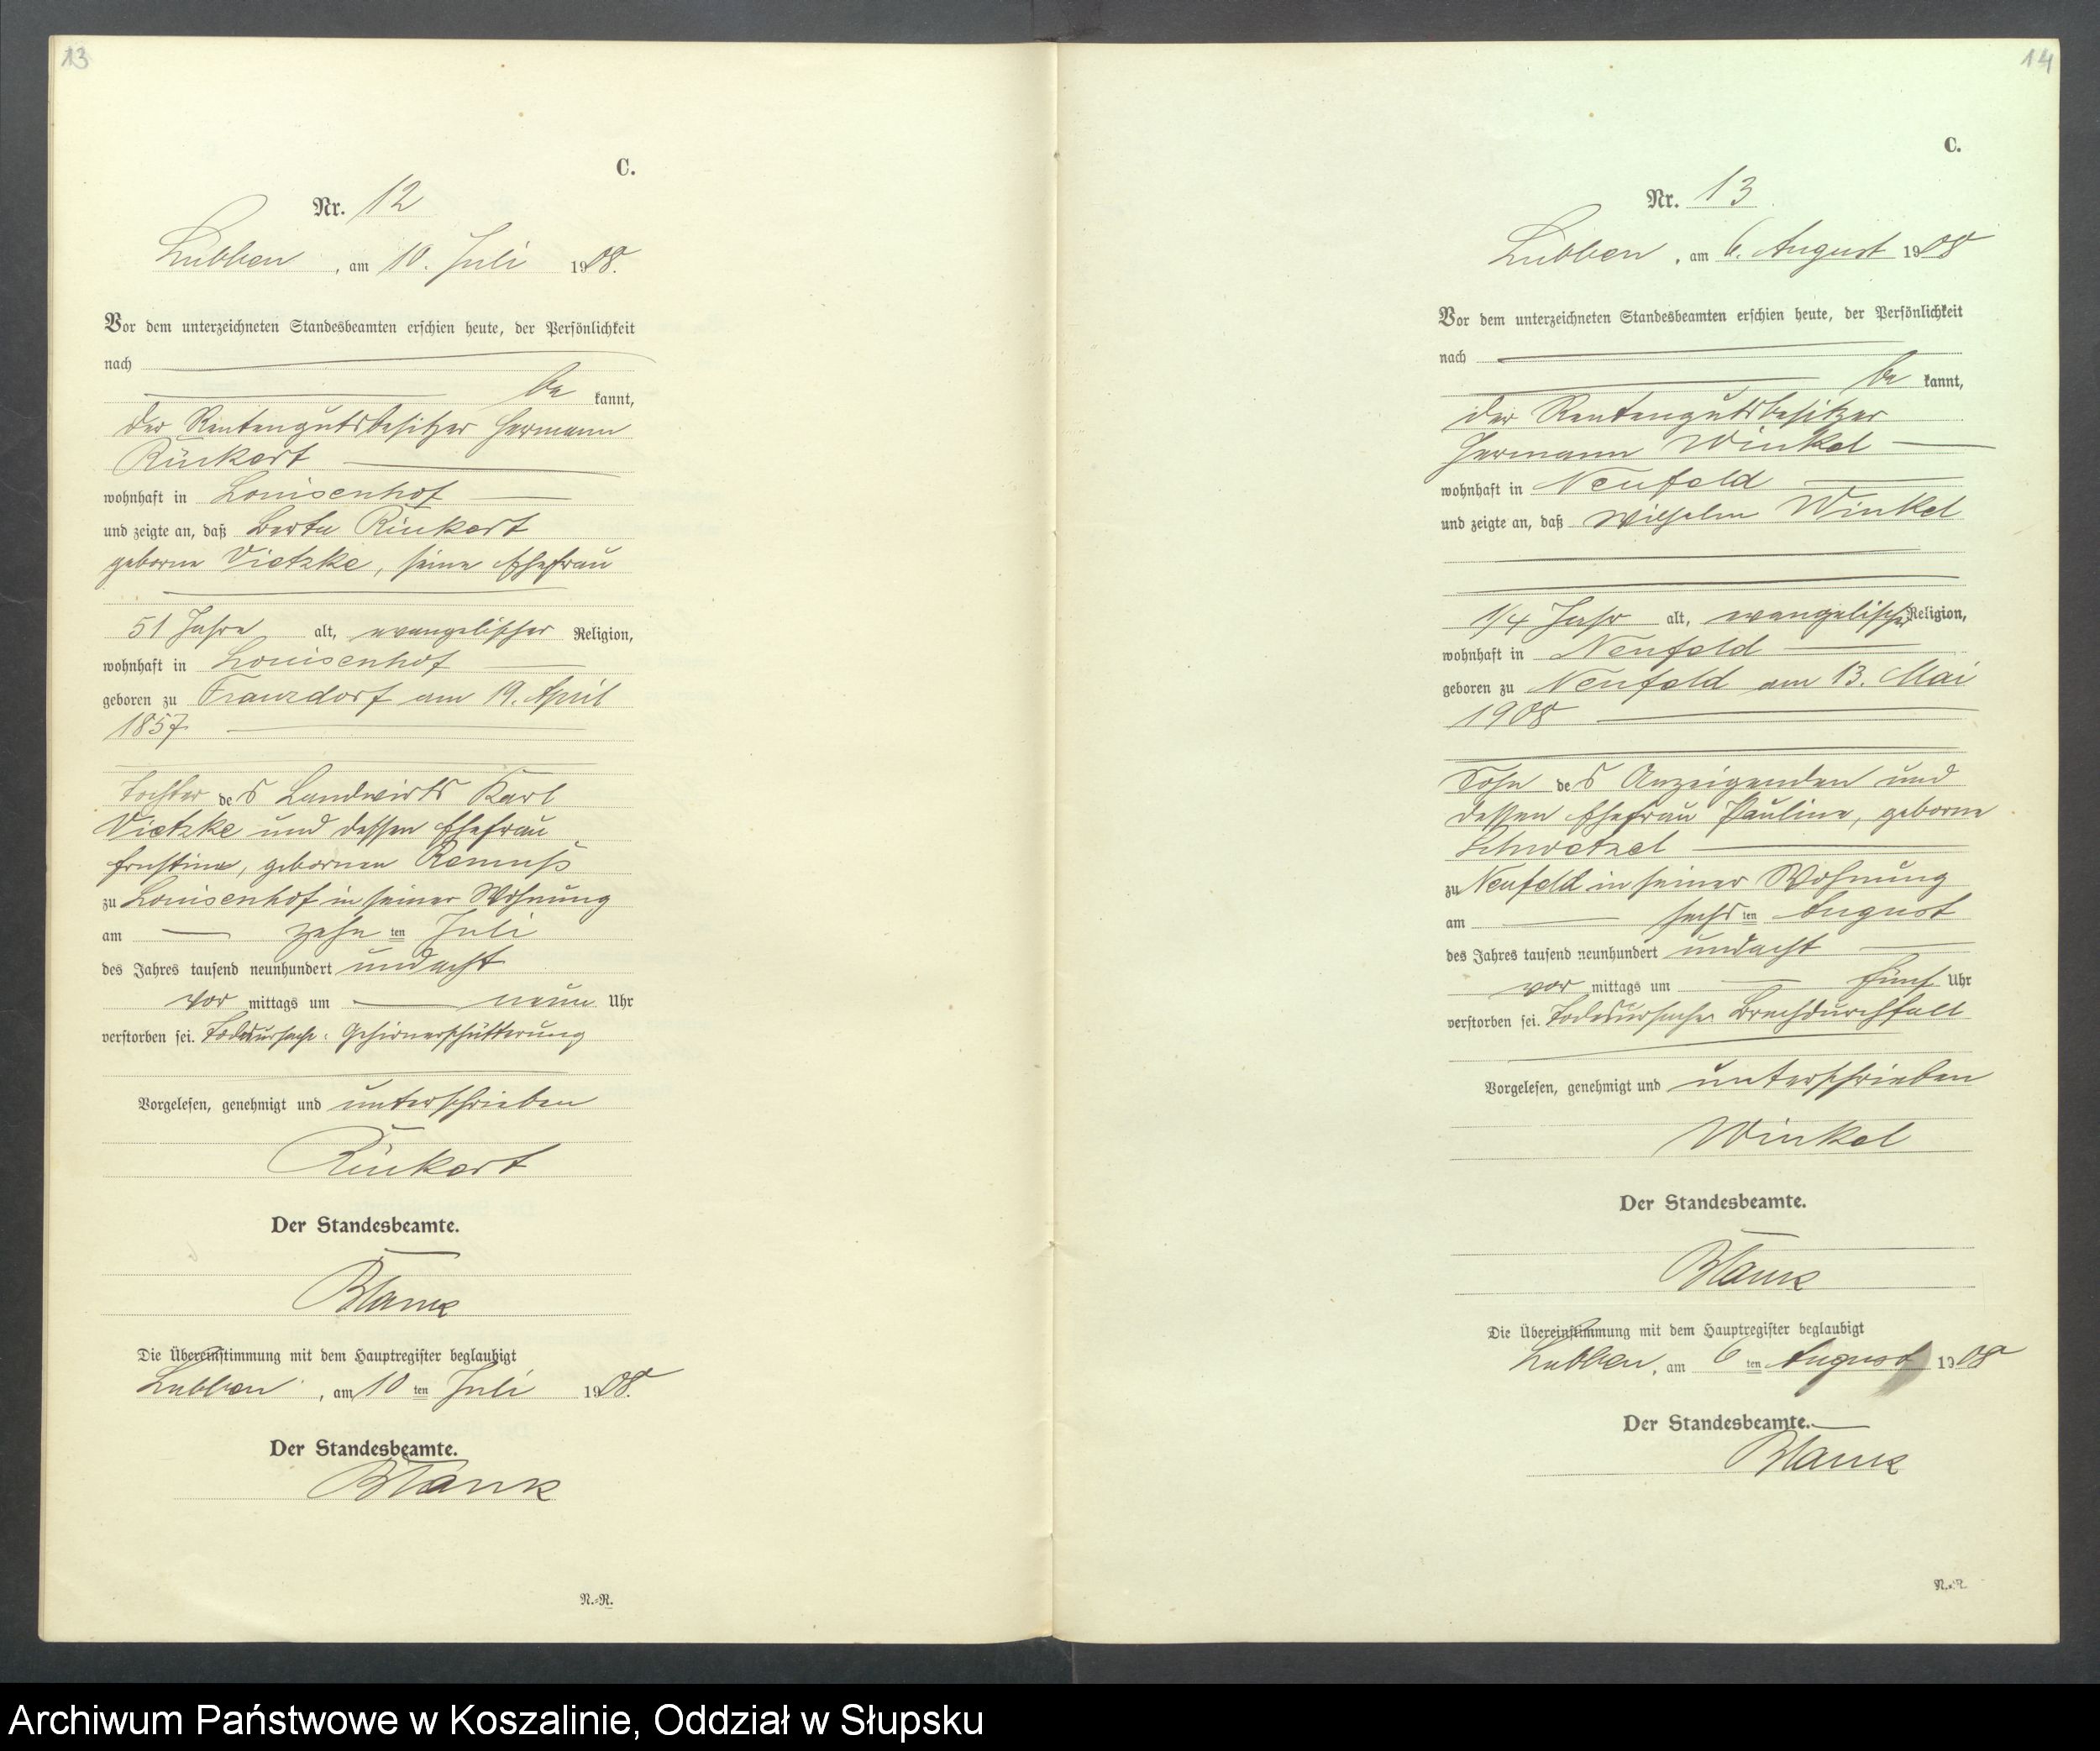 13
C.
Nr. 12
Lübben, am 10. Juli 1908.
Vor dem unterzeichneten Standesbeamten erschien heute, der Persönlichkeit
nach
be kannt,
der Rentengutsbesitzer Hermann
Rückert
wohnhaft in Louisenhof
und zeigte an, daß Berta Rückert
geborne Vietzke, seine Ehefrau
51 Jahre alt, evangelischer Religion,
wohnhaft in Louisenhof
geboren zu Franzdorf am 19. April
1857
Tochter des Landwirts Karl
Vietzke und dessen Ehefrau
Ernstine, gebornen Remuß
zu Louisenhof in seiner Wohnung
am zehn ten Juli
des Jahres tausend neunhundert undacht
vor mittags um neun Uhr
verstorben sei. Todesursache: Gehirnerschütterung
Vorgelesen, genehmigt und unterschrieben
Rückert
Der Standesbeamte.
Blank
Die Übereinstimmung mit dem Hauptregister beglaubigt
Lübben, am 10 ten Juli 1908.
Der Standesbeamte.
Blank
N.-R.
14
C.
Nr. 13
Lübben, am 6. August 1908
Vor dem unterzeichneten Standesbeamten erschien heute, der Persönlichkeit
nach
be kannt,
der Rentengutsbesitzer
Hermann Winkel
wohnhaft in Neufeld
und zeigte an, daß Wilhelm Winkel
1/4 Jahr alt, evangelischer Religion,
wohnhaft in Neufeld
geboren zu Neufeld am 13. Mai
1908
Sohn des Anzeigenden und
dessen Ehefrau Pauline, geborne
Schwetzel
zu Neufeld in seiner Wohnung
am sechs ten August
des Jahres tausend neunhundert undacht
vor mittags um fünf Uhr
verstorben sei. Todesursache Brechdurchfall
Vorgelesen, genehmigt und unterschrieben
Winkel
Der Standesbeamte.
Blank
Die Übereinstimmung mit dem Hauptregister beglaubigt
Lübben, am 6 ten August 1908
Der Standesbeamte.
Blank
N.-R.
Archiwum Państwowe w Koszalinie, Oddział w Słupsku